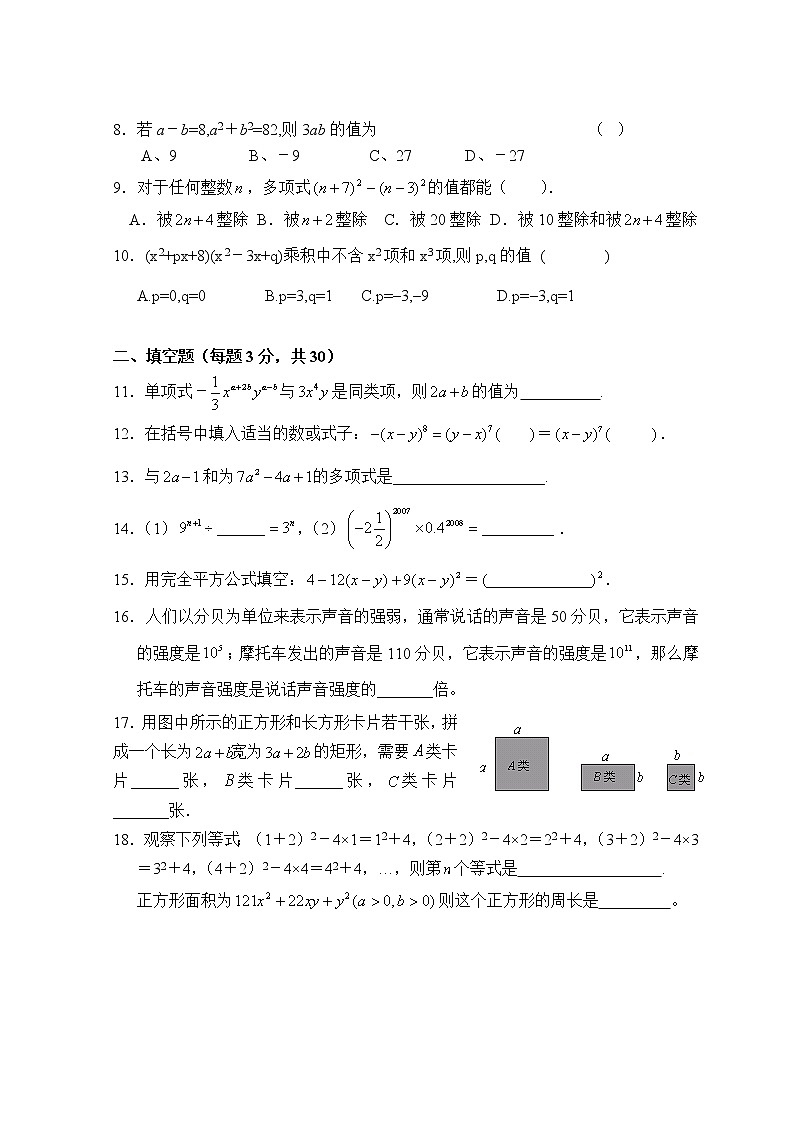 8．若 a－b=8,a²＋b²=82,则 3ab 的值为 （ ）
A、9 B、－9 C、27 D、－27
9．对于任何整数 n ，多项式 (n+7)²－(n－3)² 的值都能（ ）.
A．被 2n+4 整除 B．被 n+2 整除 C．被 20 整除 D．被 10 整除和被 2n+4 整除
10．(x²+px+8)(x²－3x+q)乘积中不含 x² 项和 x³ 项,则 p,q 的值 ( )
A.p=0,q=0 B.p=3,q=1 C.p=–3,–9 D.p=–3,q=1
二、填空题（每题 3 分，共 30）
11．单项式－1/3 x^(a+2b) y^(a−b) 与 3x⁴y 是同类项，则 2a+b 的值为__________.
12．在括号中填入适当的数或式子：−(x−y)⁸=(y−x)⁷( )＝(x−y)⁷( )．
13．与 2a−1 和为 7a²−4a+1的多项式是___________________.
14．（1）9^(n+1)÷______=3ⁿ,（2）(−2 1/2)²⁰⁰⁷×0.4²⁰⁰⁸=_________．
15．用完全平方公式填空：4−12(x−y)+9(x−y)²＝(_____________)²．
16．人们以分贝为单位来表示声音的强弱，通常说话的声音是 50 分贝，它表示声音
的强度是10⁵；摩托车发出的声音是 110 分贝，它表示声音的强度是10¹¹，那么摩
托车的声音强度是说话声音强度的_______倍。
17．用图中所示的正方形和长方形卡片若干张，拼
成一个长为 2a+b宽为 3a+2b 的矩形，需要 A类卡
片______张，B类卡片______张，C类卡片
_______张．
a
a
A类
a
B类
b
b
C类
b
18．观察下列等式：（1＋2）²－4×1＝1²＋4,（2＋2）²－4×2＝2²＋4,（3＋2）²－4×3
＝3²＋4,（4＋2）²－4×4＝4²＋4, …，则第n个等式是__________________.
正方形面积为121x²+22xy+y²(a>0,b>0) 则这个正方形的周长是_________。